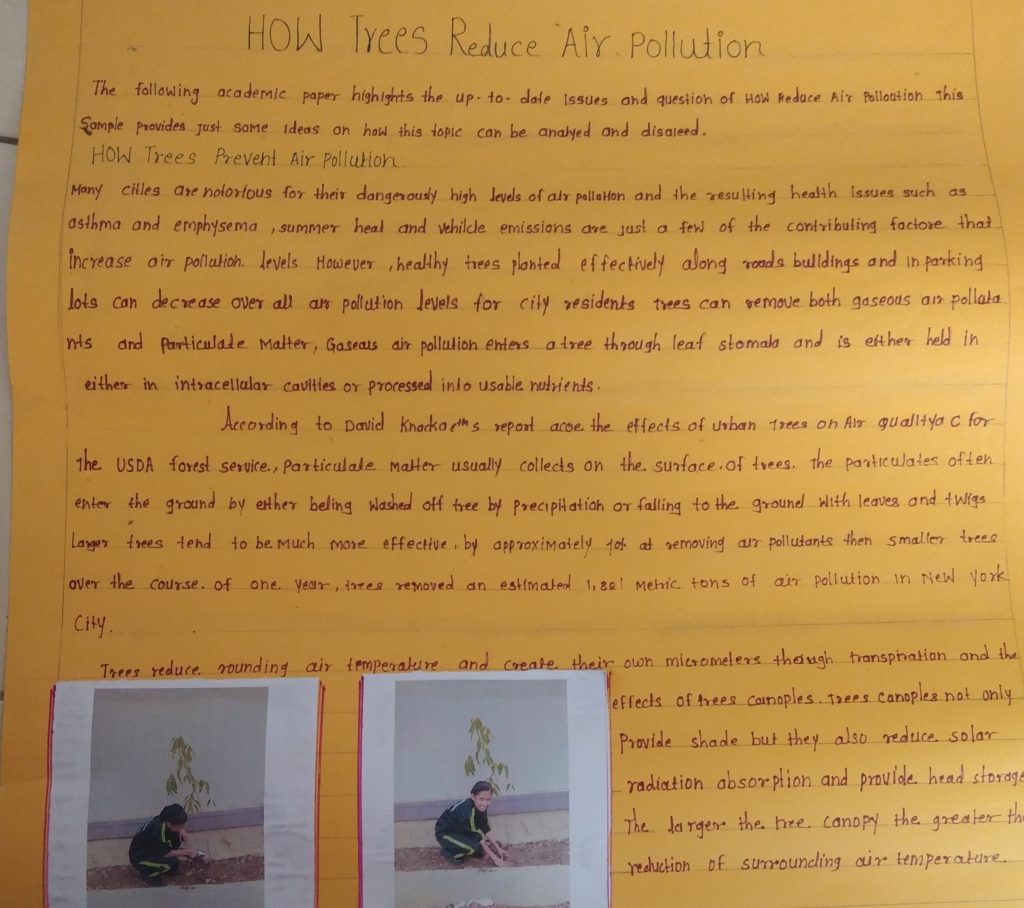 HOW Trees Reduce Air Pollution
The following academic paper highlights the up-to-date Issues and question of How Reduce Air Polloution This
Sample provides just some ideas on how this topic can be analyed and
HOW Trees Prevent Air Pollution
Many citles are notorlous for their dangerously high levels of air pollution and the resulting health issues such as
asthma and emphysema, summer heat and vehilcle emissions are just a few of the contributing factore that
increase air pollution. levels However, healthy trees planted effectively along roads bulldings and in parking
lots can decrease over all air pollution levels for city residents trees can remove both gaseous air polluta
nts and Particulate Matter, Gaseaus air pollution enters a tree through leaf stomata and is either held in
either in intracellular cavities or processed into usable nutrients.
According to David report the effects of urban Trees on Air for
the USDA forest service, Particulate Matter usually collects on the surface. of trees. The particulates often
enter the ground by either beling washed off tree by precipitation or falling to the ground with leaves and twigs
Larger trees tend to be much more effective, by approximately at removing air pollutants then smaller trees
over the course. of one year, trees removed an estimated 1,821 metric tons of air pollution in New York
City.
Trees reduce rounding air temperature and create their own micrometers though transpiration and the
effects of trees canoples. Trees canoples not only
Provide shade but they also reduce solar
radiation absorption and provide head storage
The larger the tree canopy the greater the
reduction of surrounding air temperature.